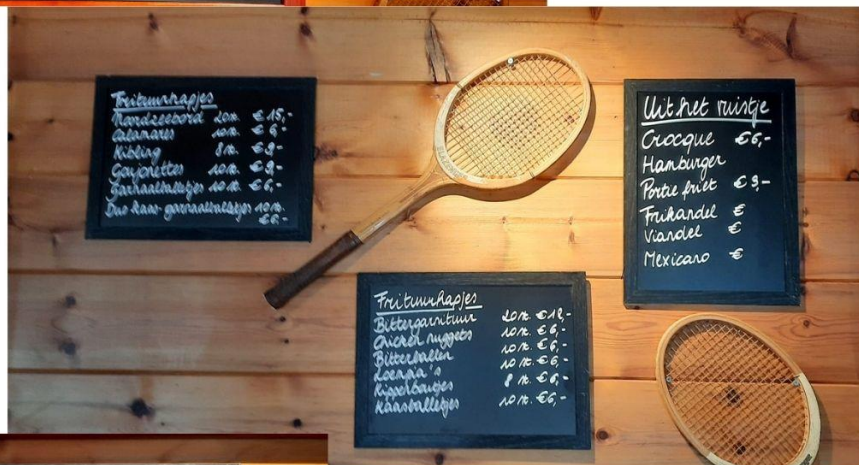 Frituurhapjes
Noordzeebord 20st. € 15,-
Calamares 10st. € 6,-
Kibling 8st. € 9,-
Goujonettes 10st. € 9,-
Garnaalballetjes 10st. € 6,-
Duo kaas-garnaalballetjes 10st.
€ 6,-
Frituurhapjes
Bittergarnituur 20st. € 12,-
Chicken nuggets 10st. € 6,-
Bitterballen 10st. € 6,-
Loempia's 10st. € 6,-
Kippenboutjes 8st. € 6,-
Kaasballetjes 10st. € 6,-
Uit het vuistje
Crocque € 6,-
Hamburger
Portie friet € 3,-
Frikandel €
Viandel €
Mexicano €